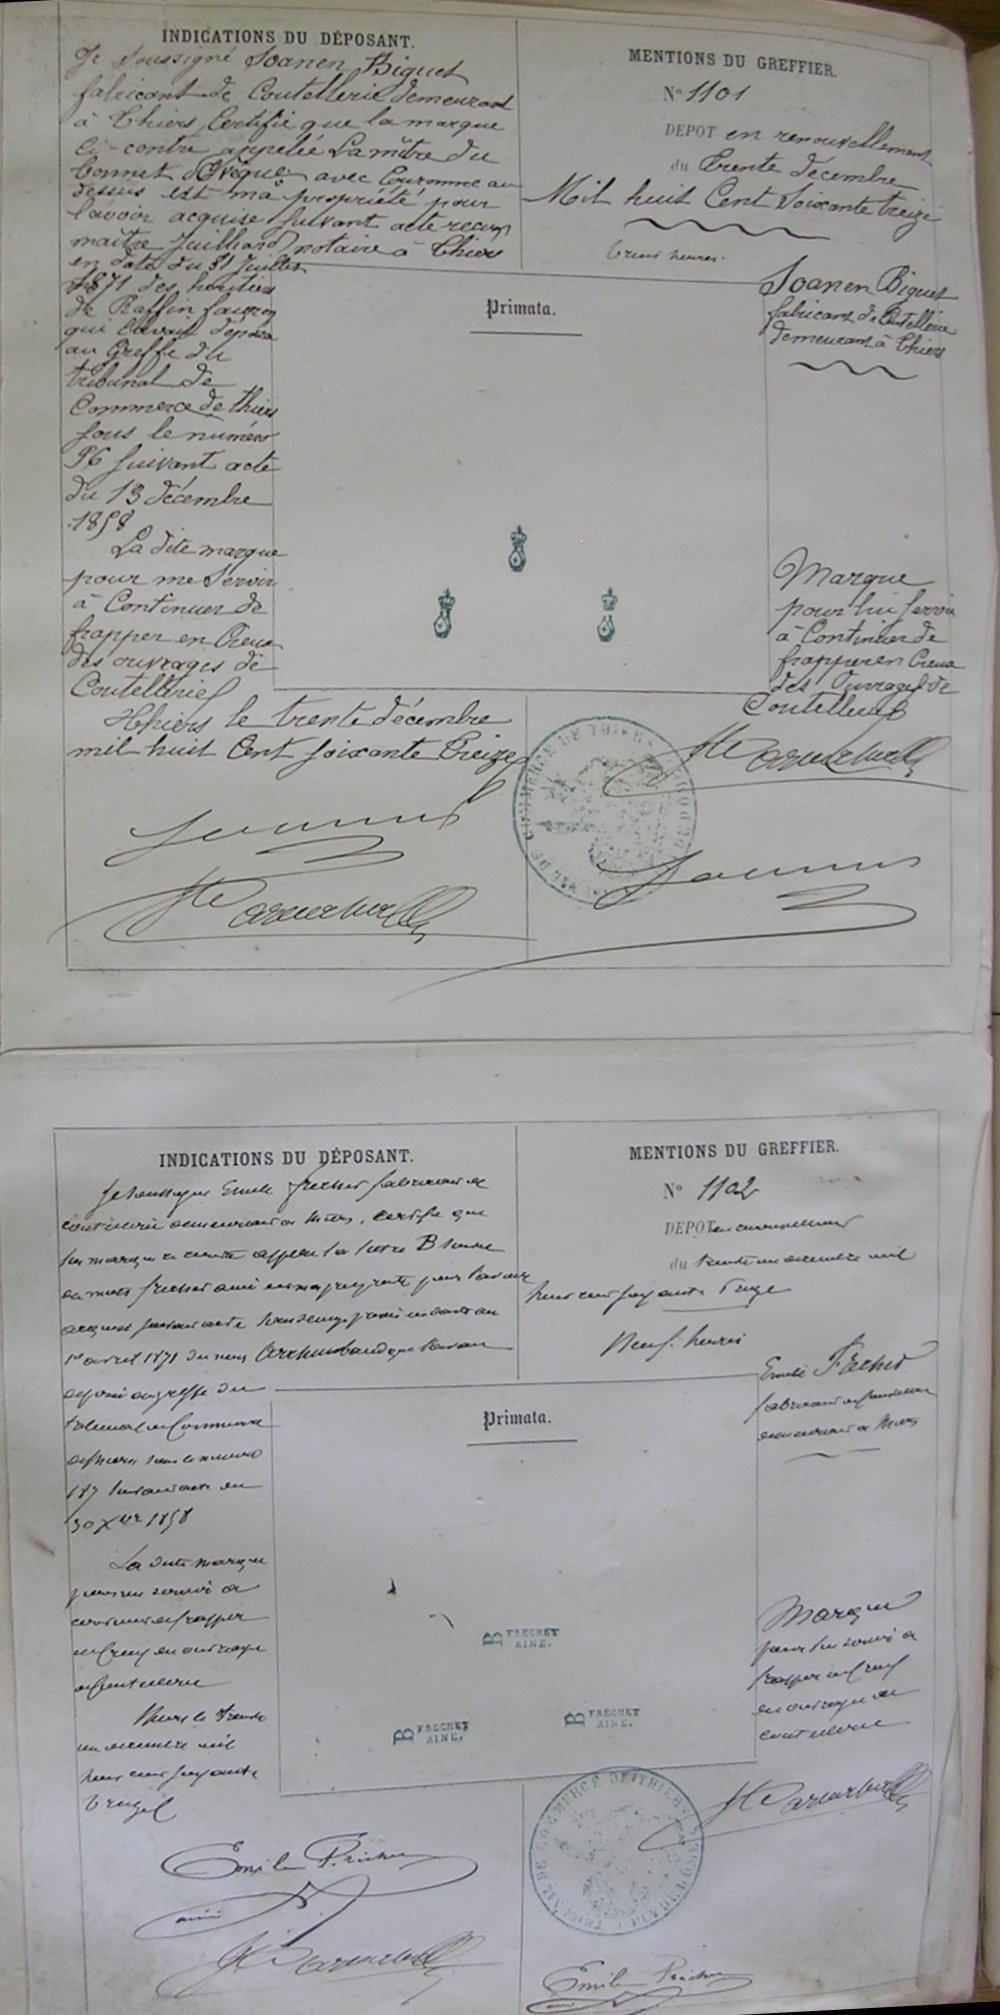 INDICATIONS DU DÉPOSANT.
Je soussigné Joanen Biguet
fabricant de Coutellerie demeurant
à Thiers Certifie que la marque
Ci-contre appelée La mître du
bonnet d'Evêque avec Couronne au
dessus est ma propriété pour
l'avoir acquise suivant acte reçu
maître Juilhard notaire à Thiers
en date du 31 Juillet
1871 des héritiers
de Raffin
qui l'avait déposé
au Greffe du
tribunal de
Commerce de thiers
sous le numéro
96 suivant acte
du 13 décembre
1858
La dite marque
pour me servir
à Continuer de
frapper en Creux
des ouvrages de
Coutellerie
Thiers le trente décembre
mil huit Cent soixante Treize
MENTIONS DU GREFFIER.
N° 1101
DEPOT en renouvellement
du trente décembre
Mil huit Cent Soixante treize
trois heures.
Joanen Biguet
fabricant de Coutellerie
demeurant à Thiers
Primata.
Marque
pour lui servir
à Continuer de
frapper en Creux
des Ouvrages de
Coutellerie
INDICATIONS DU DÉPOSANT.
Je soussigné Emile Frechet fabricant de
coutellerie demeurant à Thiers, certifie que
la marque ci contre appelée la lettre B suivie
du mot frechet ainé est ma propriété pour l'avoir
acquise suivant acte sous seing privé en date du
1er avril 1871 du sieur Archimbaud qui l'avait
déposé au greffe du
tribunal de Commerce
de Thiers sous le numéro
187 suivant acte du
30 Xbre 1858
La dite marque
pour me servir à
continuer de frapper
en creux des ouvrages
de coutellerie
Thiers le trente
un décembre mil
huit cent soixante
treize
Emile Frechet
ainé
MENTIONS DU GREFFIER.
N° 1102
DEPOT en renouvellement
du trente un décembre mil
huit cent soixante treize
Neuf heures
Emile Frechet
fabricant de coutellerie
demeurant à Thiers
Primata.
B FRECHET
AINE.
B FRECHET
AINE.
B FRECHET
AINE.
Marque
pour lui servir à
frapper en creux
des ouvrages de
coutellerie
TRIBUNAL DE COMMERCE DE THIERS
Emile Frechet